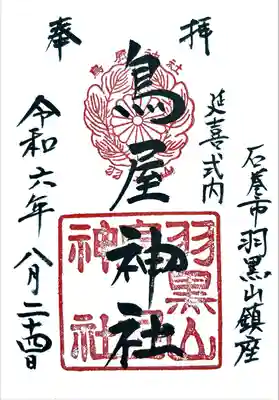 奉拝
石巻市羽黒山鎮座
延喜式内
鳥屋神社
鳥屋神社
羽黒山鳥屋神社
令和六年八月二十四日